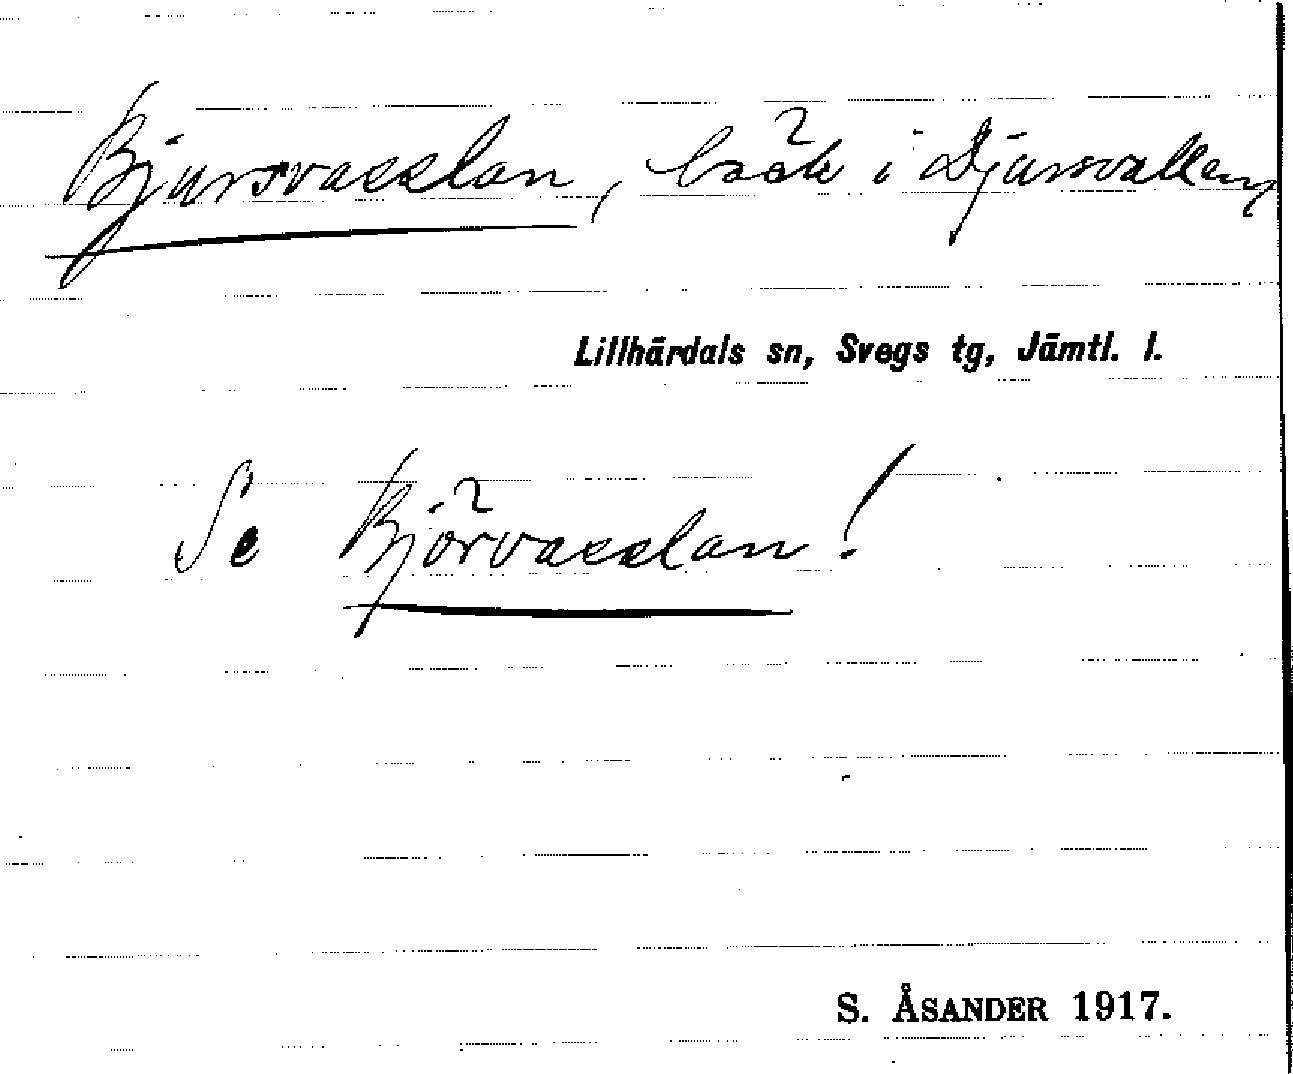 Bjursvasslan, bäck i Djursvallen,
Lillhärdals sn, Svegs tg, Jämtl. l.
Se Björvasslan!
S. ÅSANDER 1917.